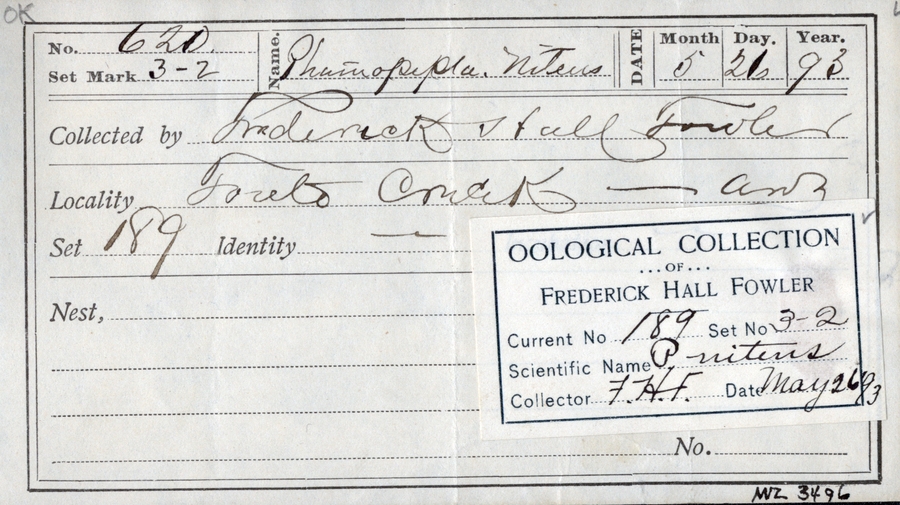 OK
No. 620. Name. Phainopepla. Nitens DATE Month Day. Year.
Set Mark 3-2 5 26 93
Collected by Frederick Hall Fowler
Locality Creek —
Set 189 Identity —
Nest,
OOLOGICAL COLLECTION
...OF...
FREDERICK HALL FOWLER
Current No 189 Set No 3-2
Scientific Name P. nitens
Collector F.H.F. Date May 26 93
No.
MVZ 3496